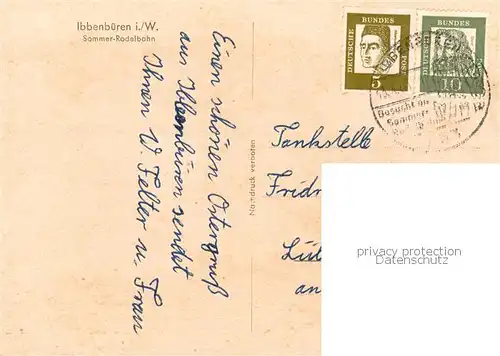 Ibbenbüren i./W.
Sommer-Rodelbahn
Einen schönen Ostergruß
aus Ibbenbüren sendet
Ihnen W Felter u. Frau
Nachdruck verboten
DEUTSCHE BUNDES POST
5
DEUTSCHE BUNDES
10
Besucht die
Sommer-
Tankstelle
Fridr
Lüb
an
privacy protection
Datenschutz